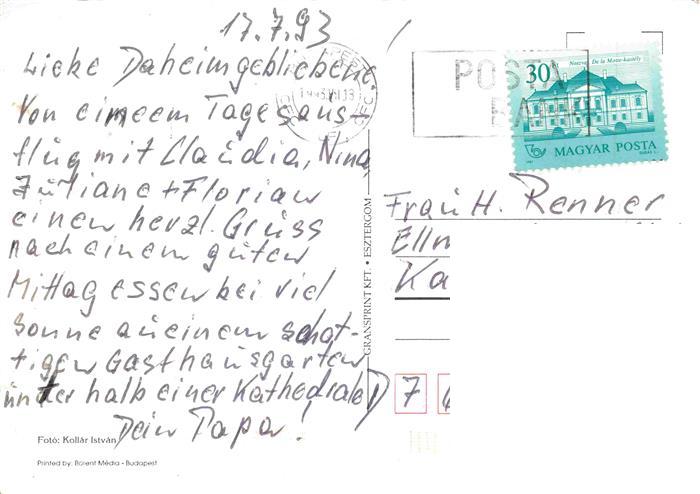 17.7.93
Lieke Daheimgebliebene
Von eimeem Tagesaus-
flug mit Claudia, Nina
Juliane + Florian
einen herzl. Gruss
nach einem guten
Mittagessen bei viel
Sonne au einem schat-
tigen Gasthausgarten
unter halb einer Kathedrale
Dein Papa!
Fotó: Kollár István
Printed by: Borent Média • Budapest
GRANSPRINT KFT. • ESZTERGOM
POSTA
30
Nagyvázsony De la Motte-kastély
MAGYAR POSTA
Frau H. Renner
Ellm
Ka
D 7